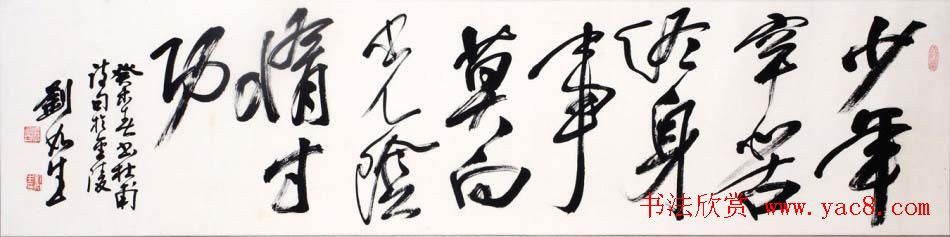 少年
辛苦
终身
事
莫向
光陰
惰寸
功
癸未春书杜甫
诗句於金陵
劉
生
书法欣赏 www.yac8.com